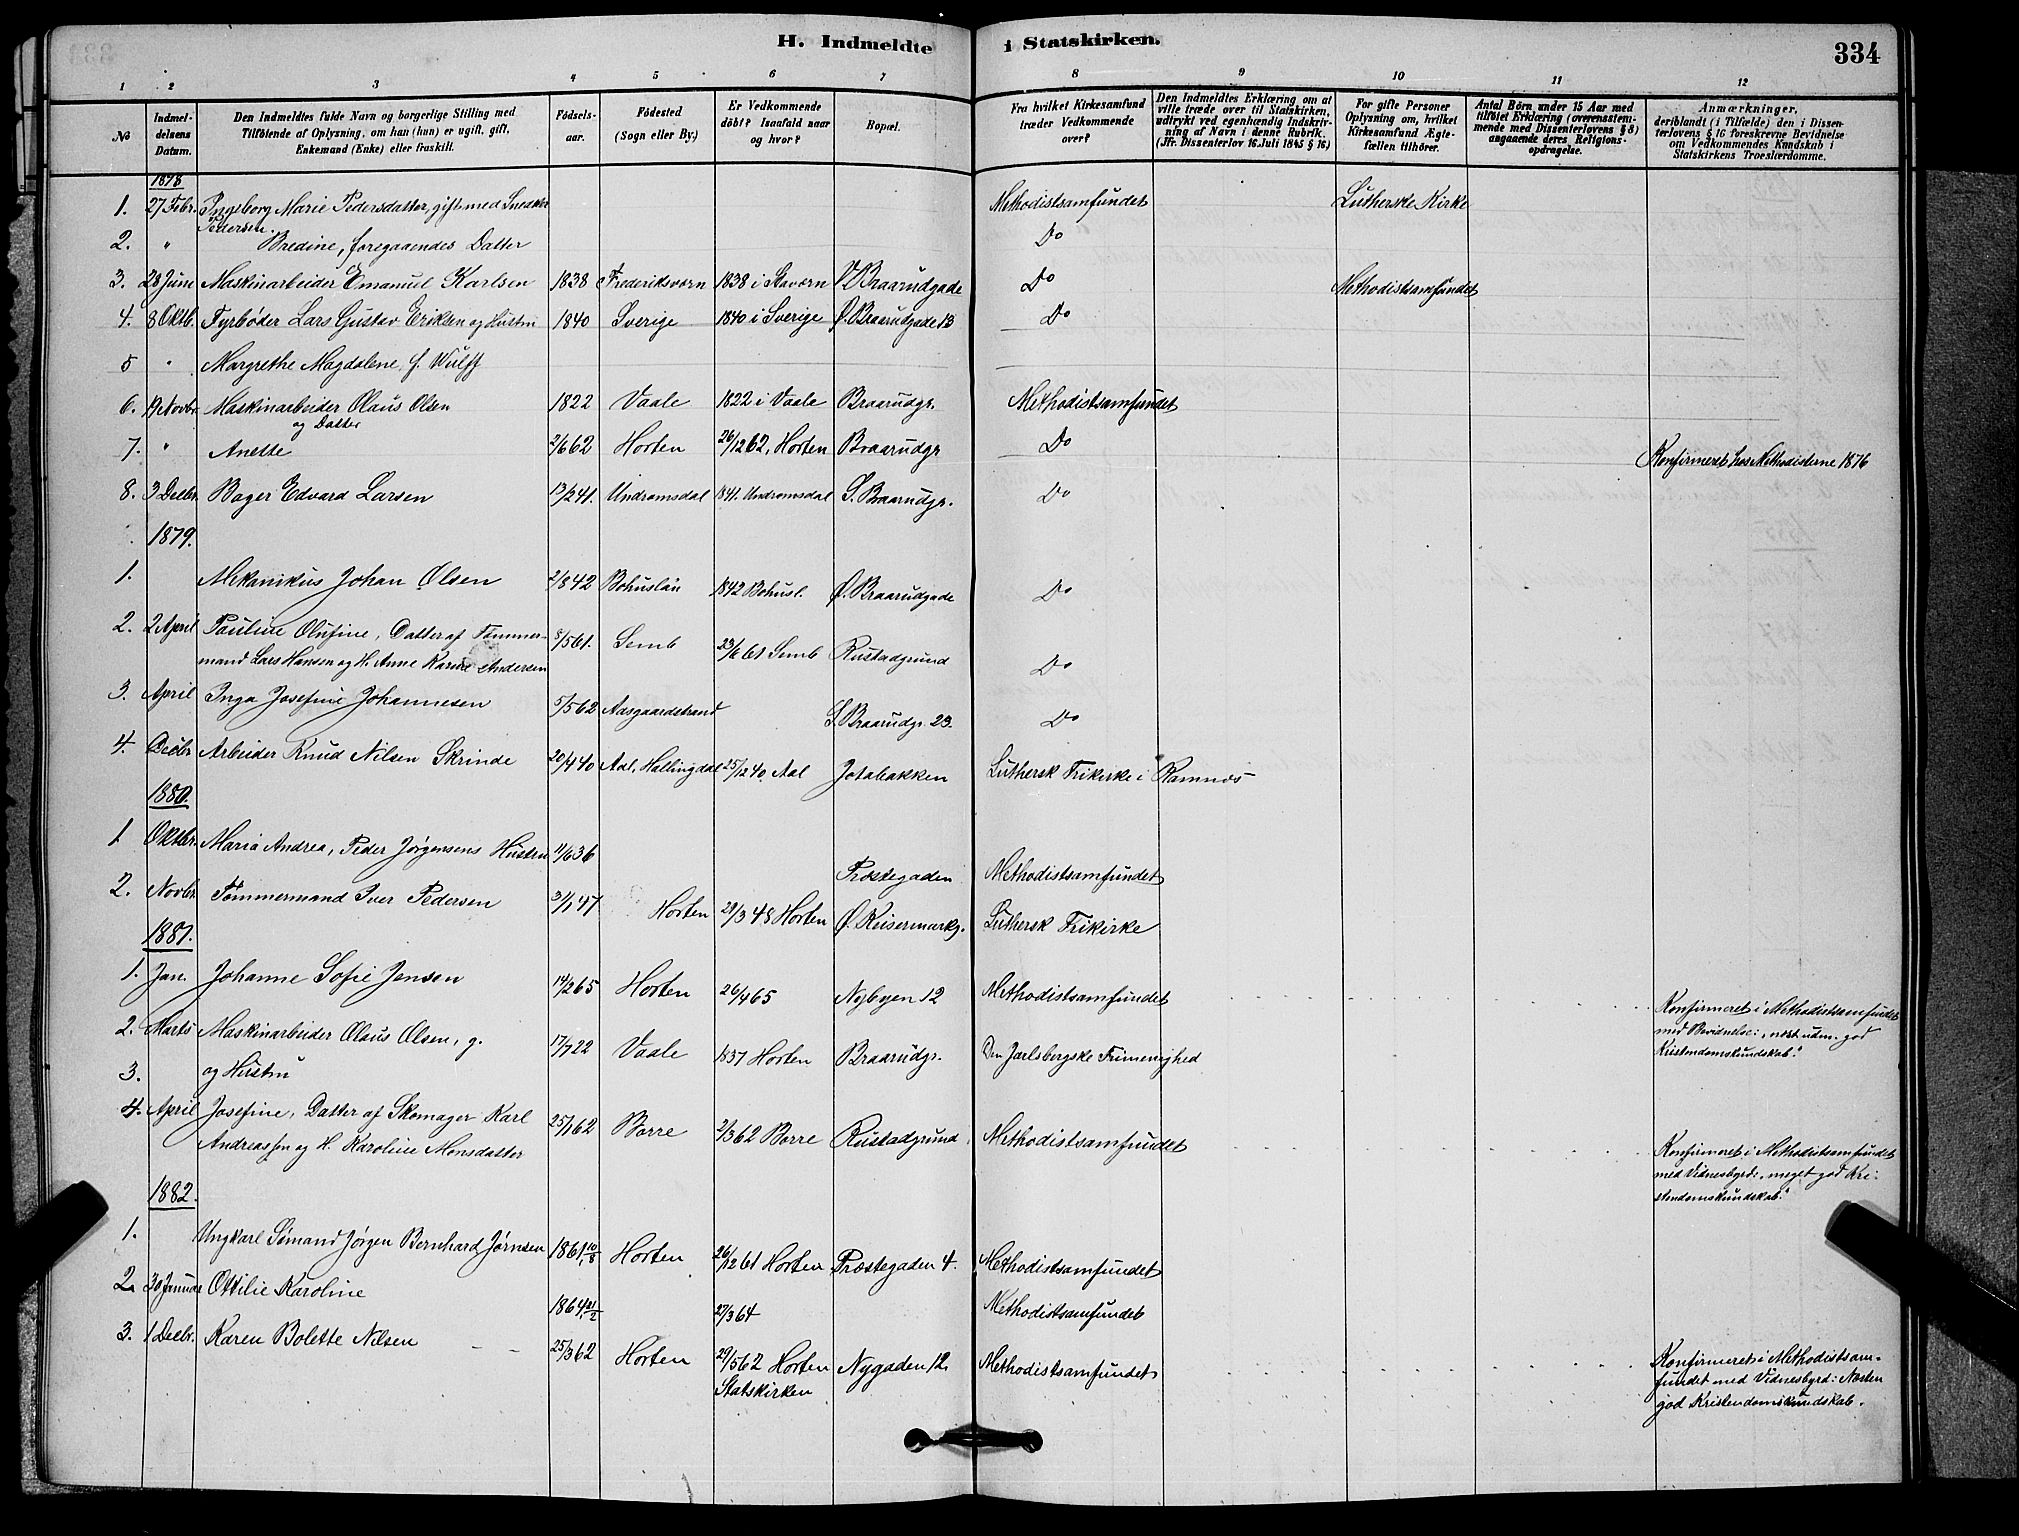 H. Indmeldte i Statskirken.
334
1 2 3 4 5 6 7 8 9 10 11 12
No
Indmel-
delsens
Datum.
Den Indmeldtes fulde Navn og borgerlige Stilling med
Tilföiende af Oplysning, om han (hun) er ugift, gift,
Enkemand (Enke) eller fraskilt.
Födsels-
aar.
Födested
(Sogn eller By.)
Er Vedkommende
döbt? Isaafald naar
og hvor?
Bopæl.
Fra hvilket Kirkesamfund
træder Vedkommende
over?
Den Indmeldtes Erklæring om at
ville træde over til Statskirken,
udtrykt ved egenhændig Indskriv-
ning af Navn i denne Rubrik.
(Jfr. Dissenterlov 16. Juli 1845 § 16)
For gifte Personer
Oplysning om, hvilket
Kirkesamfund Ægte-
fællen tilhörer.
Antal Börn under 15 Aar med
tilföiet Erklæring (overensstem-
mende med Dissenterlovens § 8)
angaaende deres Religions-
opdragelse.
Anmærkninger,
deriblandt (i Tilfælde) den i Dissen-
terlovens § 16 foreskrevne Bevidnelse
om Vedkommendes Kundskab i
Statskirkens Troeslærdomme.
1878
1. 27 Febr. Ingeborg Marie Pedersdatter, gift med Snedker Methodistsamfundet Lutherske Kirke
Pedersen.
2. " Bredine, foregaaendes Datter Do
3. 28 Juni Maskinarbeider Emanuel Karlsen 1838 Frederiksværn 1838 i Stavern V. Braarudgade Do Methodistsamfundet
4. 8 Oktb. Fyrbøder Lars Gustav Eriksen og Hustru 1840 Sverige 1840 i Sverige Ø. Braarudgade 13 Do
5 " Margrethe Magdalene f. Wulff
6. 19 Novbr. Maskinarbeider Olaus Olsen 1822 Vaale 1822 i Vaale Braarudgr. Methodistsamfundet
og Datter
7. " Anette 2/6 62 Horten 26/12 62, Horten Braarudgr Do Konfirmeret hos Methodisterne 1876
8. 3 Decbr. Bager Edvard Larsen 13/2 41. Undrumsdal 1841. Undrumsdal S. Braarudgr. Do
1879.
1. Mekanikus Johan Olsen 2/8 42 Bohuslän 1842 Bohusl. Ø. Braarudgade Do
2. 2 April Pauline Olufine, Datter af Tømmer- 8/5 61. Semb 23/6 61 Semb Rustadgrund Do
mand Lars Hansen og H. Anne Karine Andersen
3. April Inga Josefine Johannesen 5/5 62 Aasgaardstrand S. Braarudgr. 23. Do
4. Decbr Arbeider Knud Nilsen Skrinde 20/4 40 Aal, Hallingdal 25/12 40. Aal Jotabakken Luthersk Frikirke i Ramnæs
1880.
1 Oktbr. Maria Andrea, Peder Jørgensens Hustru 11/6 36 Præstegaden Methodistsamfundet
2. Novbr. Tømmermand Iver Pedersen 31/1 47 Horten 29/3 48 Horten Ø. Keisermarkg. Luthersk Frikirke
1881.
1. Jan. Johanne Sofie Jensen 14/2 65 Horten 26/4 65 Nybyen 12 Methodistsamfundet Konfirmeret i Methodistsamfundet
med Bevidnelse: „næst uden. god
Kristendomskundskab."
2. Marts Maskinarbeider Olaus Olsen, g. 17/7 22 Vaale 1837 Horten Braarudgr. Den Jarlsbergske Frimenighed
3. og Hustru
4. April Josefine, Datter af Skomager Karl 25/1 62 Borre 2/3 62 Borre Rustadgrund Methodistsamfundet
Andreassen og H. Karoline Monsdatter
Konfirmeret i Methodistsamfundet
med Vidnesbyrd: „meget god Kri-
stendomskundskab."
1882.
1. Ungkarl Sømand Jørgen Bernhard Jørnsen 1861, 10/8 Horten 26/12 61 Horten Præstegaden 4. Methodistsamfundet
2. 30 Januar Ottilie Karoline 1864, 21/2 27/3 64 Methodistsamfundet
3. 1 Decbr. Karen Bolette Nilsen 25/3 62 Horten 29/5 62 Horten Nygaden 12. Methodistsamfundet
Statskirken
Konfirmeret i Methodistsam-
fundet med Vidnesbyrd: Næsten
god Kristendomskundskab.